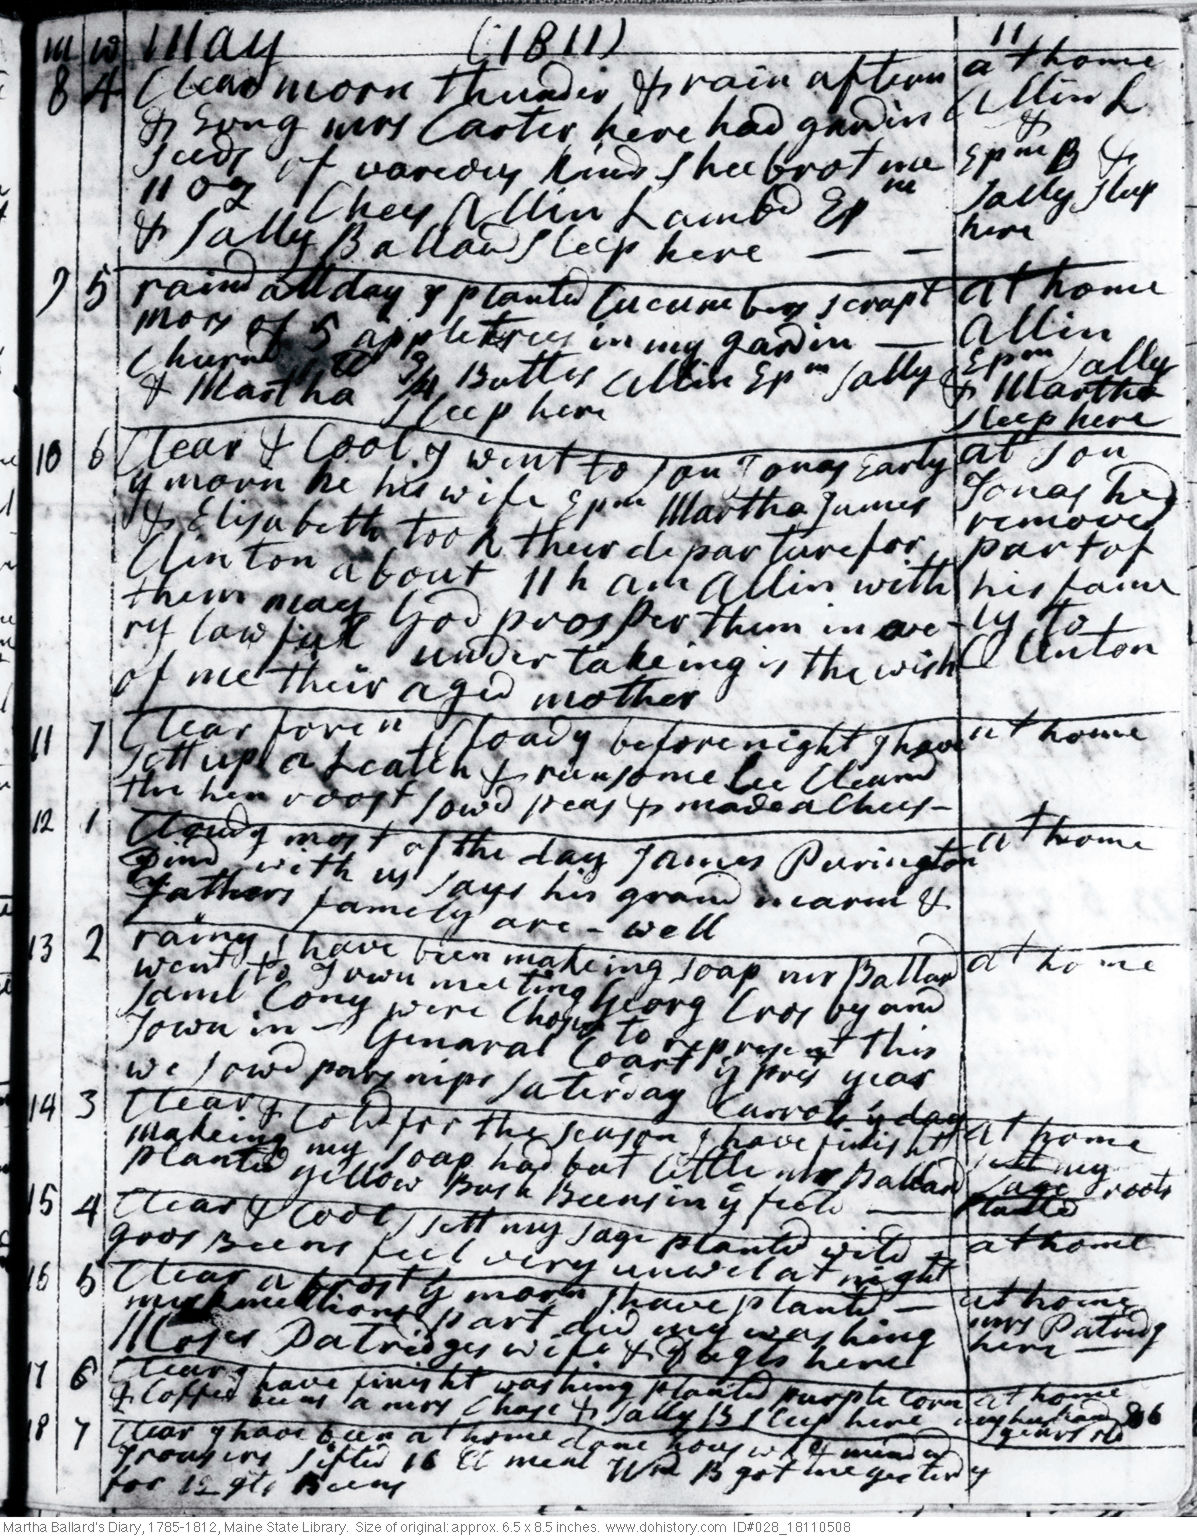 m w May (1811) 11
8 4 Clear morn thunder & rain aftern
& Evng mrs Carter here had gardin
seeds of kinds shee brot me
11 oz Chees Allin Lambd Epm
& Sally Ballard sleep here — —
at home
Allin L
&
Epm B &
Sally sleep
here
9 5 raind all day y planted Cucumbers scrapt
moss of 5 appletrees in my gardin —
Churnd 3/4 Butter Allin Epm Sally
& Martha sleep here
at home
Allin
Epm Sally
& Martha
sleep here
10 6 Clear & Cool y went to son Jonas Early
y morn he his wife Epm Martha James
& Elisabeth took their departure for
Clinton about 11 h am Allin with
them may God prosper them in ave-
ry lawfull undertakeing is the wish
of me their aged mother
at son
Jonas he
removed
part of
his fame
ly to
Clinton
11 7 Clear foren Cloudy before night I have
sett up a Leatch & run some Lie Cleand
the hen roost sowd peas & made a Chees –
at home
12 1 Cloudy most of the day James Purington
Dind with us says his grand marm &
fathers famely are – well
at home
13 2 rainy I have been makeing soap mr Ballard
went to Town meeting Georg Crosby and
Saml Cony were Chosen to represent this
Town in – Genaral Coart y prest year
we sowd parsnips Saterday Carrots y day
at home
14 3 Clear & Cold for the season I have finisht
makeing my soap had but little mr Ballard
planted yellow Bush Beens in y field —
at home
sett my
sage roots
planted
15 4 Clear & Cool I sett my sage planted wild
goos Beens feel very unwel at night
at home
16 5 Clear a frosty morn I have planted —
muskmellions part did my washing
Moses Patridges wife & Dagts here
at home
mrs Patridg
here —
17 6 Clear y have finisht washing planted purple Corn
& Coffee beens mrs Chase & Sally B sleep here
at home
my husband 86
years old
18 7 Clear y have been at home done hous wk & mended
Trousers sifted 16 lb meal Wm B got me yesterdy
for 12 qts Beens
Martha Ballard's Diary, 1785-1812, Maine State Library. Size of original: approx. 6.5 x 8.5 inches. www.dohistory.com ID#028_18110508